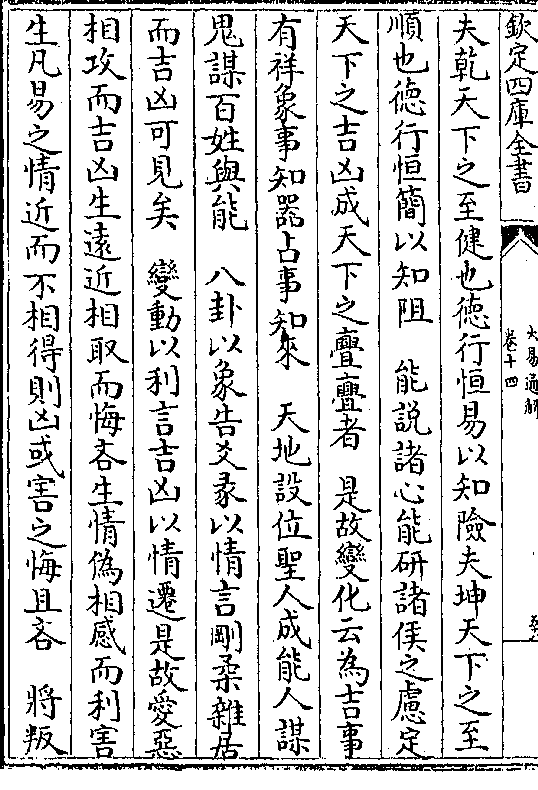 欽定四庫全書
大易通解
卷十四
夫乾天下之至健也德行恒易以知險夫坤天下之至
順也德行恒簡以知阻　能説諸心能研諸侯之慮定
天下之吉凶成天下之亹亹者　是故變化云為吉事
有祥象事知器占事知來　天地設位聖人成能人謀
鬼謀百姓與能　八卦以象告爻彖以情言剛柔雜居
而吉凶可見矣　變動以利言吉凶以情遷是故愛惡
相攻而吉凶生遠近相取而悔吝生情偽相感而利害
生凡易之情近而不相得則凶或害之悔且吝　將叛